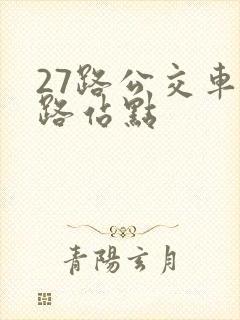 27路公交車
路站點
青陽玄月